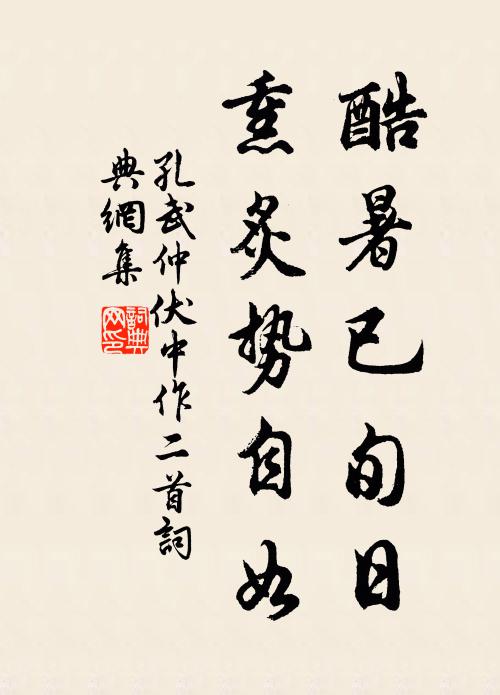 酷暑已旬日
熏炙势自如
孔武仲伏中作二首詞
典網集
詞典
网印